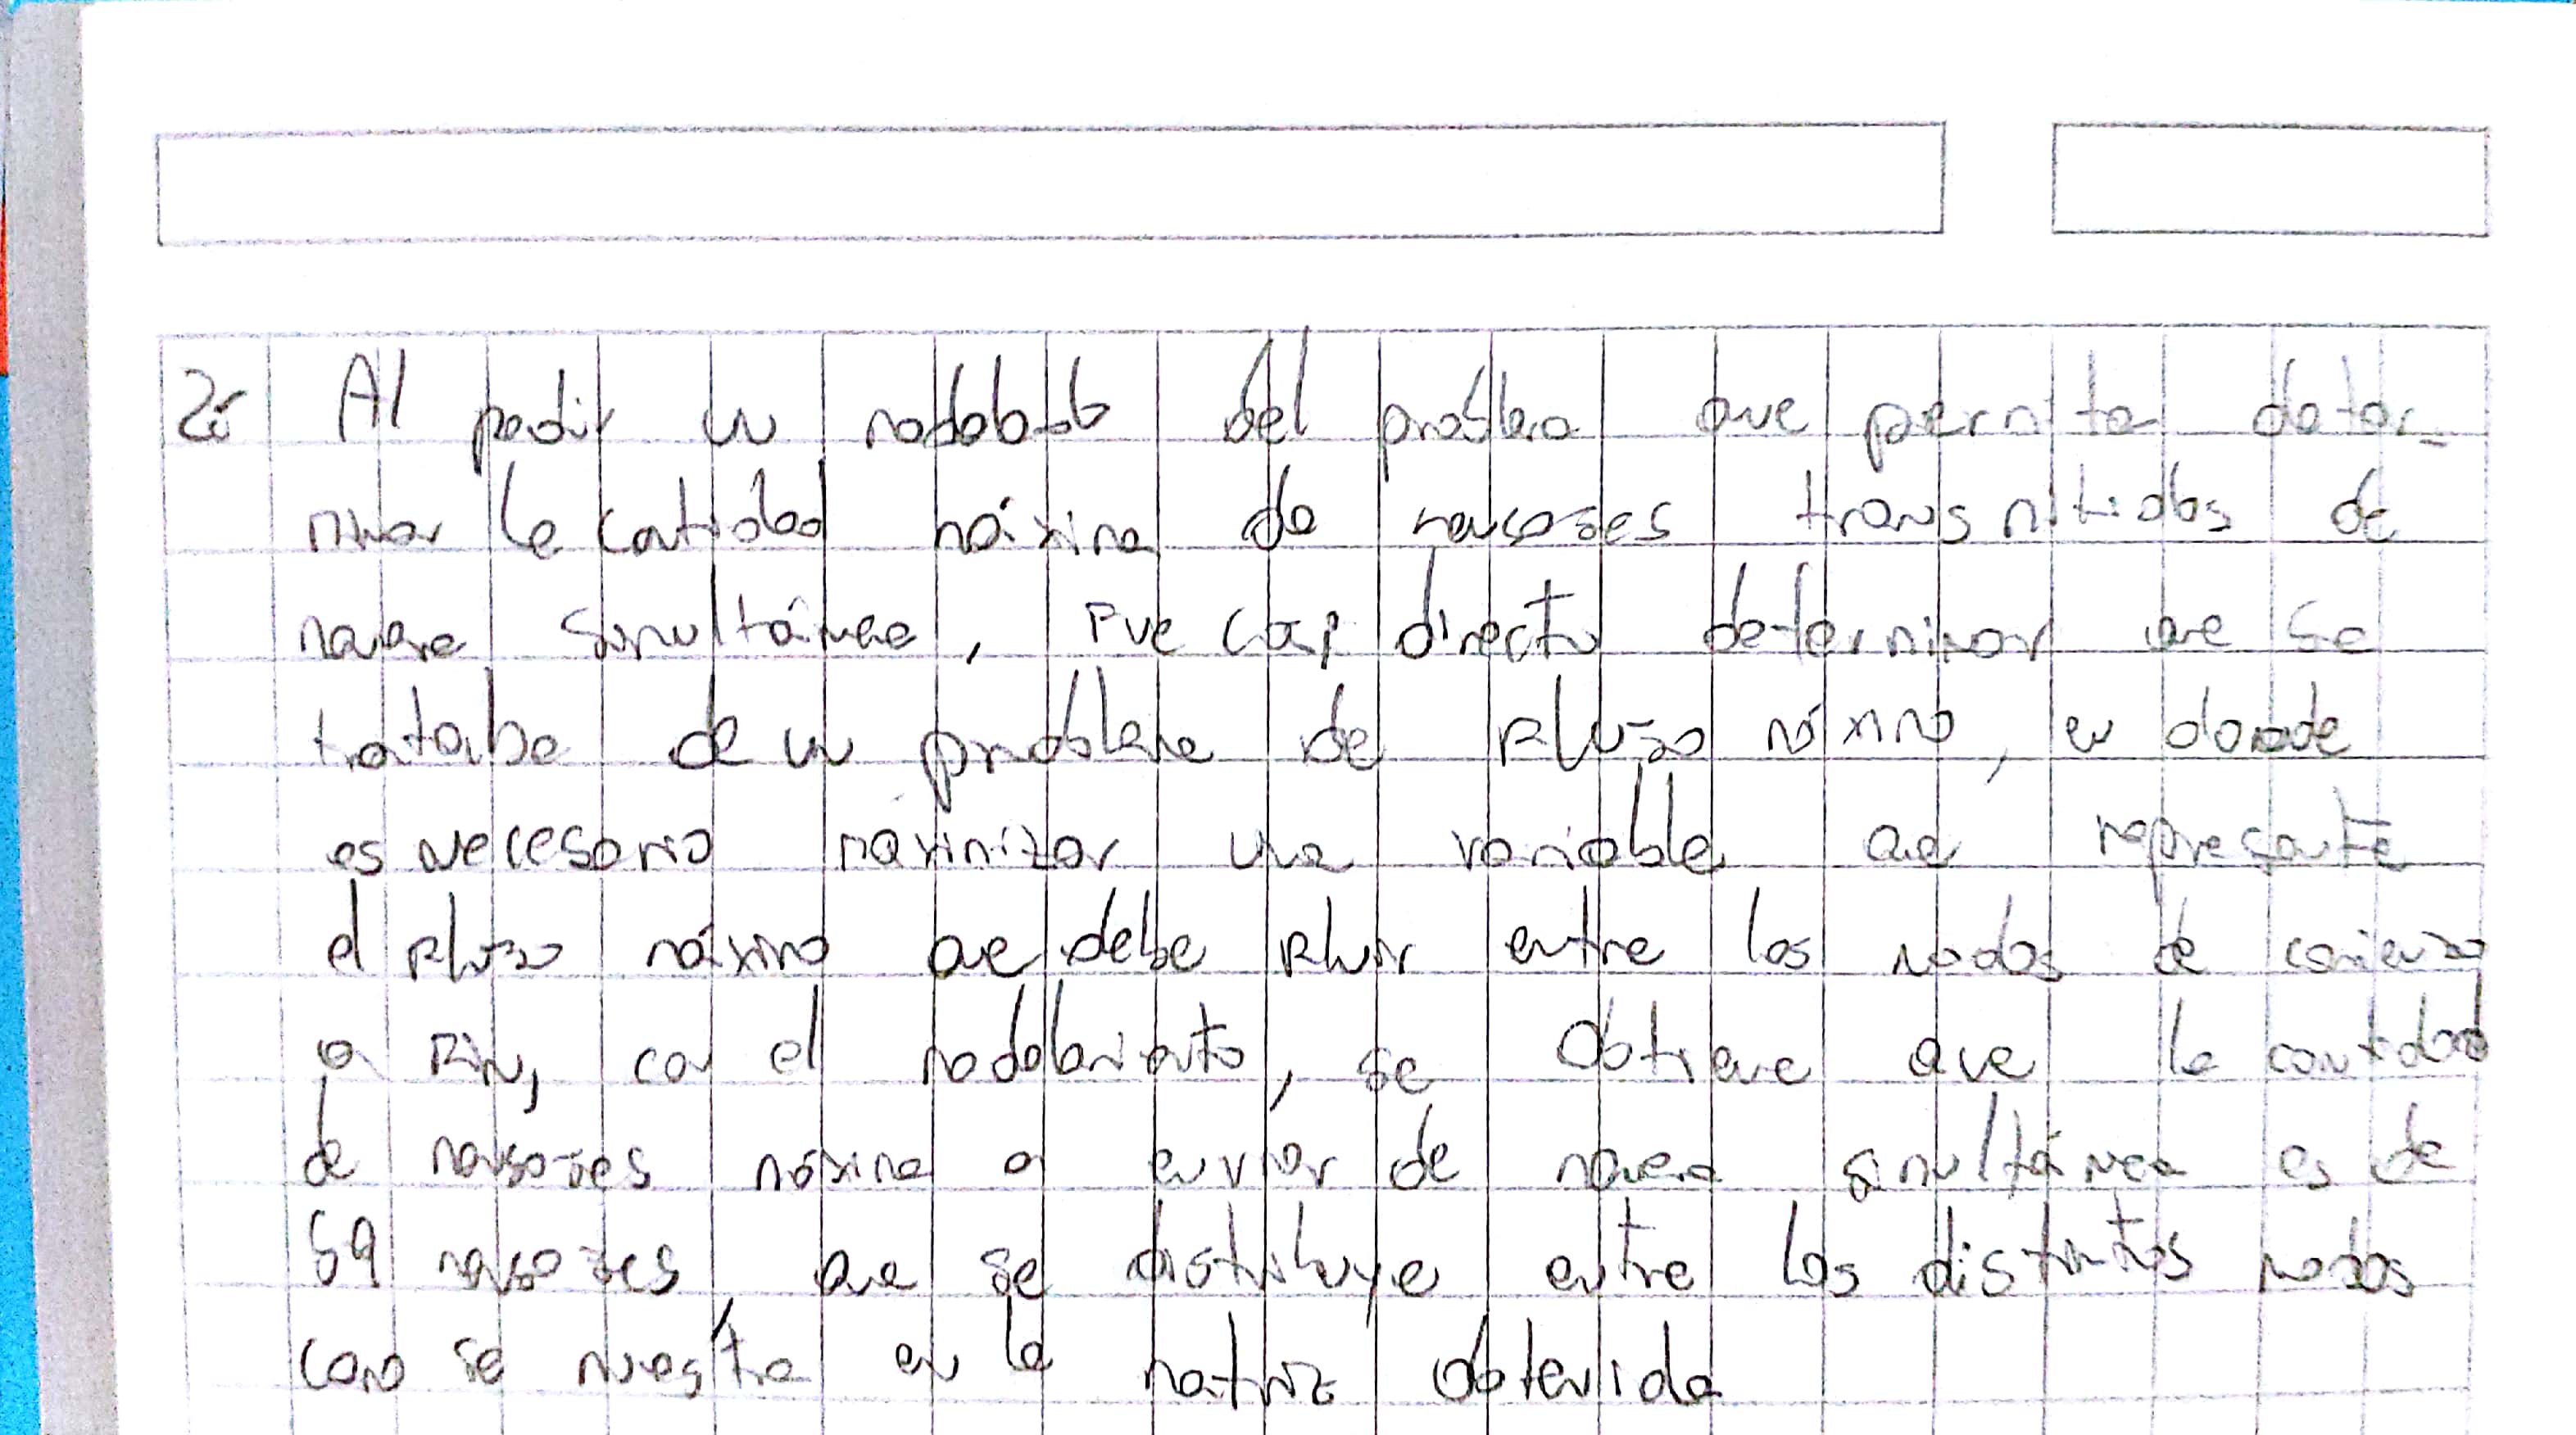 2: Al pedir un modelo del problema que permita deter-
minar la cantidad máxima de mensajes transmitidos de
manera simultánea, fue casi directo determinar que se
trataba de un problema de flujo máximo, en donde
es necesario maximizar una variable que represente
el flujo máximo que debe fluir entre los nodos de comienzo
a fin, con el modelamiento, se obtiene que la cantidad
de mensajes máxima a enviar de manera simultánea es de
59 mensajes, que se distribuye entre los distintos nodos
como se muestra en la matriz obtenida